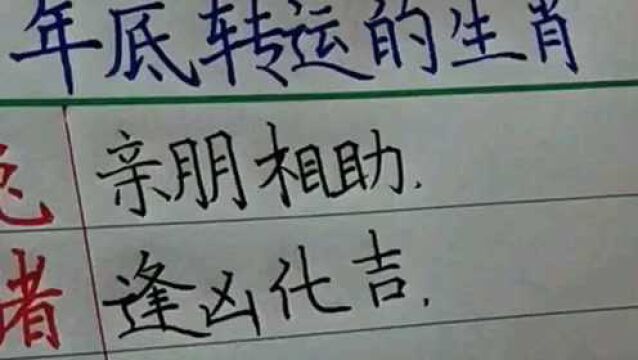 年底转运的生肖
兔 亲朋相助.
猪 逢凶化吉.